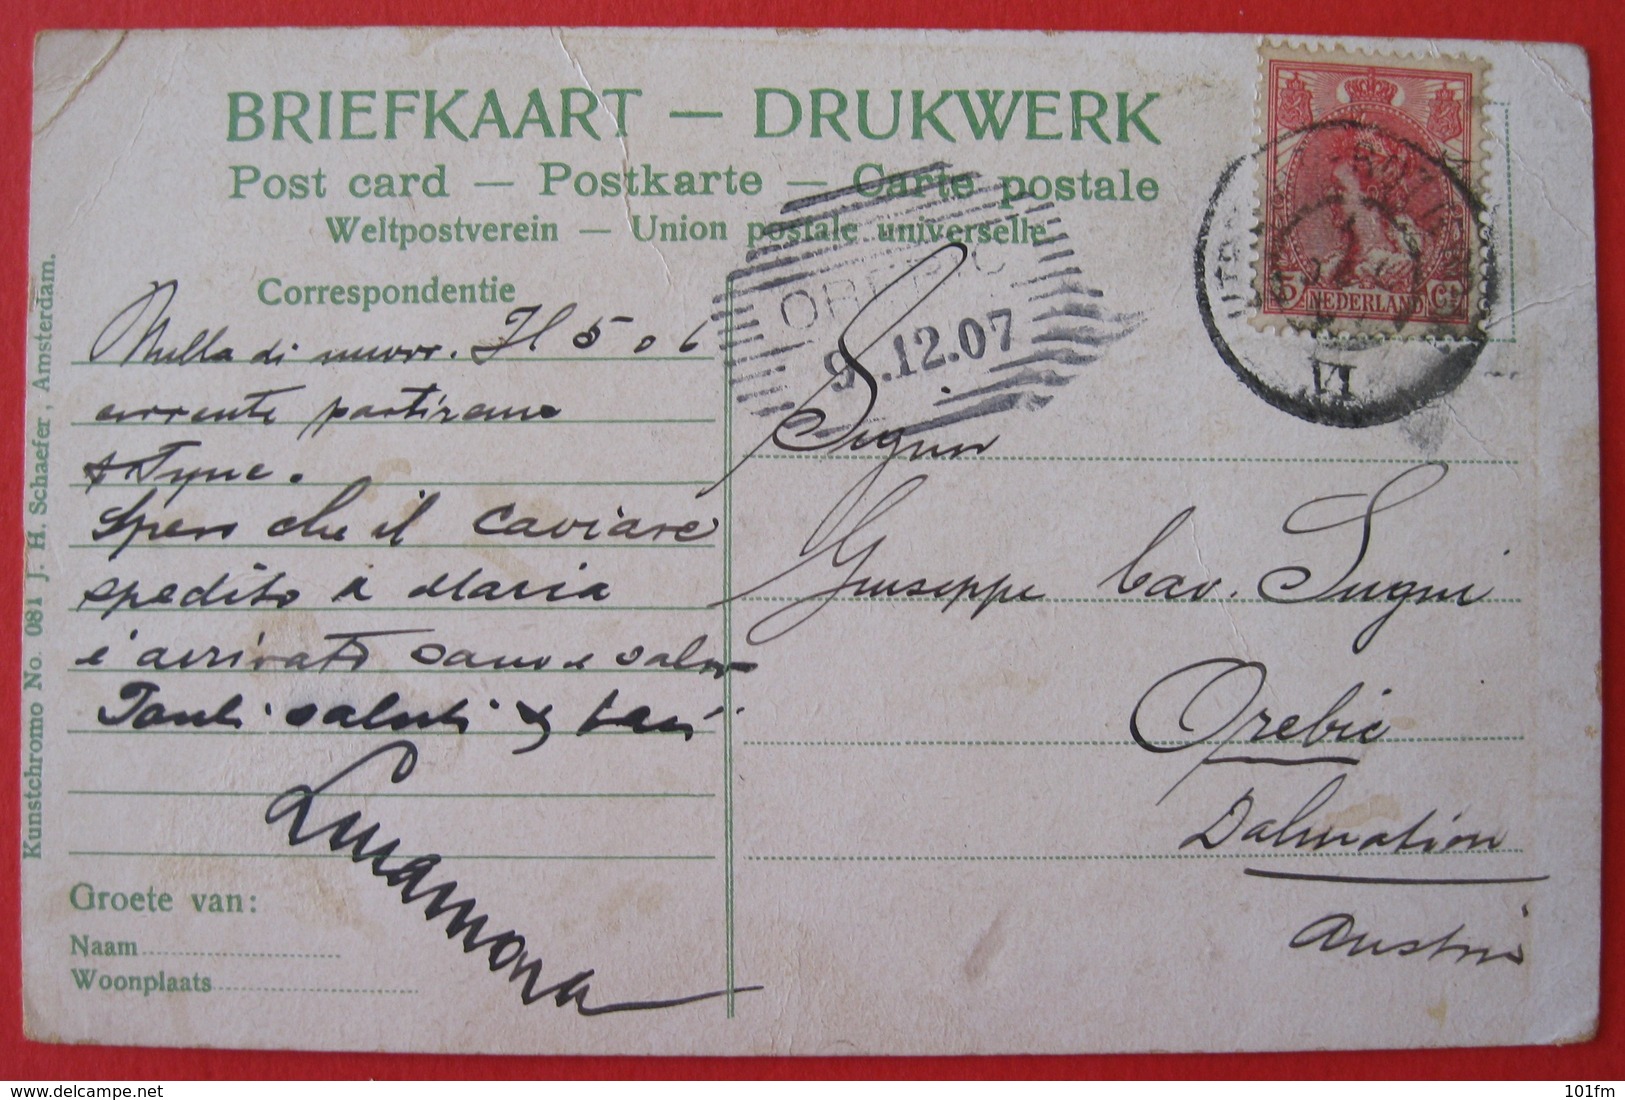 BRIEFKAART — DRUKWERK
Post card — Postkarte — Carte postale
Weltpostverein — Union postale universelle
Correspondentie
Nulla di nuovo. Il 5 o 6
corrente partiremo
x Tyne.
Spero che il Caviare
spedito a Maria
è arrivato sano e salvo
Tanti saluti &
Groete van:
Naam
Woonplaats
Kunstchromo No. 081 J. H. Schaefer, Amsterdam.
OREBIC
9.12.07
5 NEDERLAND Ct
VI
Signor
Giuseppe Cav. Sugni
Orebic
Dalmation
Austria
101fm